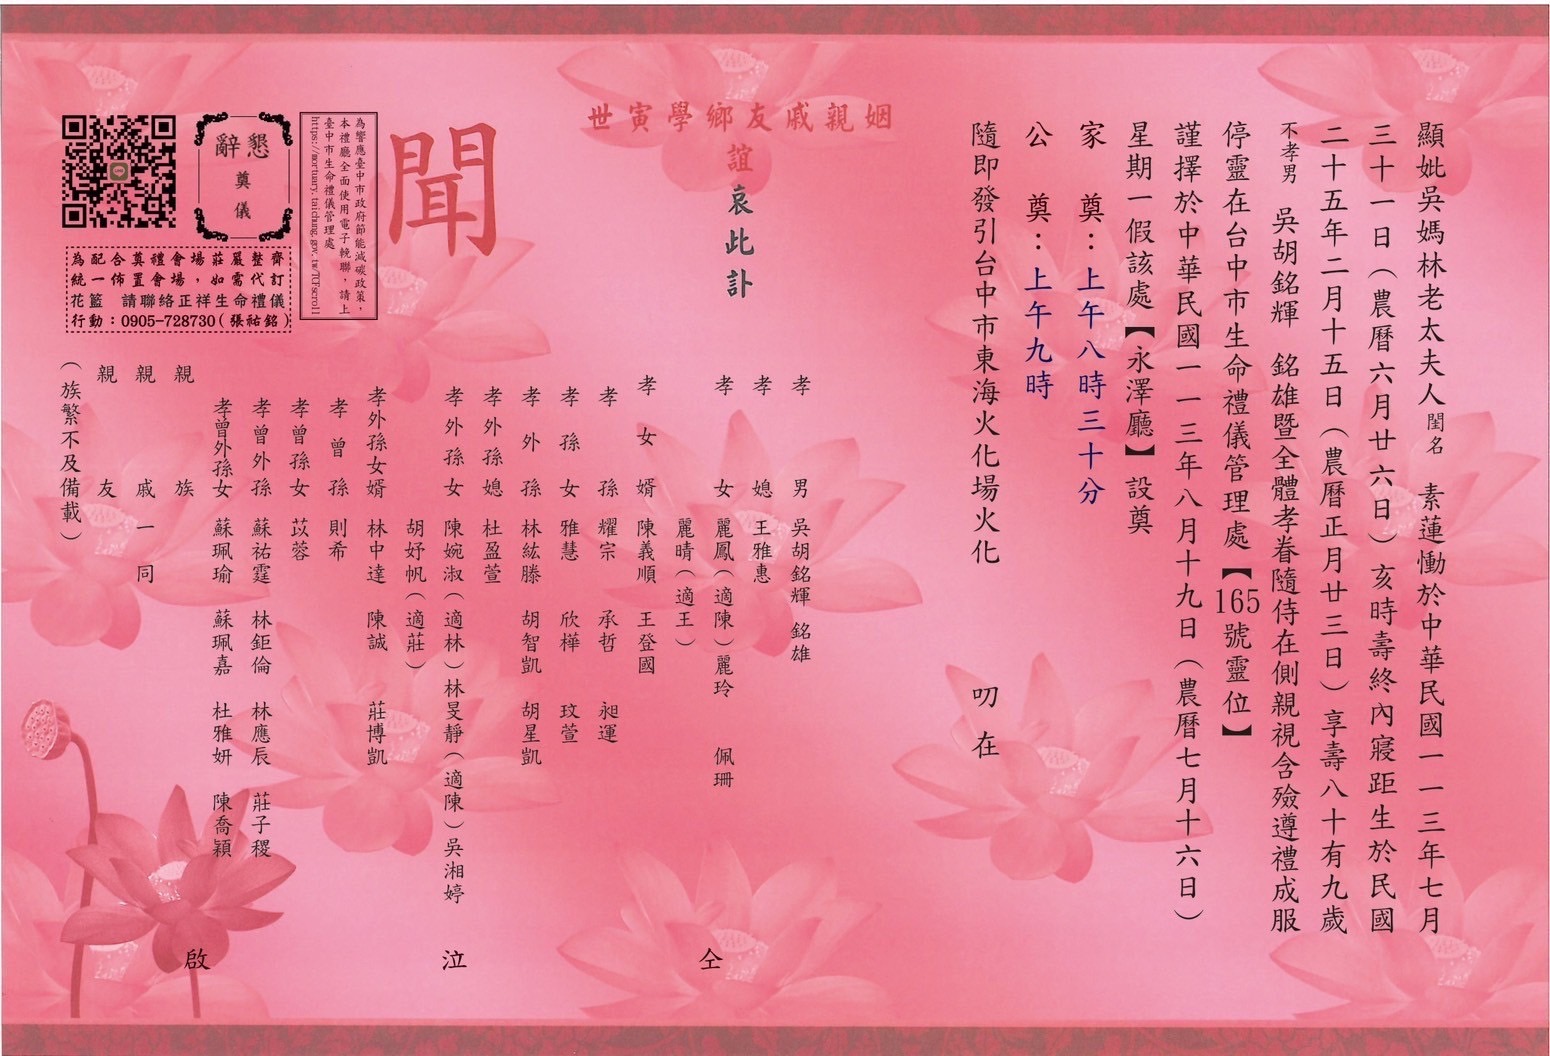 顯妣吳媽林老太夫人閨名 素蓮慟於中華民國一一三年七月
三十一日（農曆六月廿六日）亥時壽終內寢距生於民國
二十五年二月十五日（農曆正月廿三日）享壽八十有九歲
不孝男 吳胡銘輝 銘雄暨全體孝眷隨侍在側親視含殮遵禮成服
停靈在台中市生命禮儀管理處【165號靈位】
謹擇於中華民國一一三年八月十九日（農曆七月十六日）
星期一假該處【永澤廳】設奠
家 奠：上午八時三十分
公 奠：上午九時
隨即發引台中市東海火化場火化
叨在
姻親戚友鄉學寅世
誼
哀此訃
聞
孝 男 吳胡銘輝 銘雄
孝 媳 王雅惠
孝 女 麗鳳（適陳）麗玲 佩珊
麗晴（適王）
孝女婿 陳義順 王登國
孝 孫 耀宗 承哲 昶運
孝孫女 雅慧 欣樺 玟萱
孝外孫 林紘滕 胡智凱 胡星凱
孝外孫媳 杜盈萱
孝外孫女 陳婉淑（適林）林旻靜（適陳）吳湘婷
胡妤帆（適莊）
孝外孫女婿 林中達 陳誠 莊博凱
孝曾孫 則希
孝曾孫女 苡蓉
孝曾外孫 蘇祐霆 林鉅倫 林應辰 莊子稷
孝曾外孫女 蘇珮瑜 蘇珮嘉 杜雅妍 陳喬穎
親 族
親 戚一同
親 友
（族繁不及備載）
仝
泣
啟
為響應臺中市政府節能減碳政策，
本禮廳全面使用電子輓聯，請上
臺中市生命禮儀管理處
https://mortuary.taichung.gov.tw/TCFscroll
懇辭
奠
儀
為配合奠禮會場莊嚴整齊
統一佈置會場，如需代訂
花籃 請聯絡正祥生命禮儀
行動：0905-728730(張祐銘)